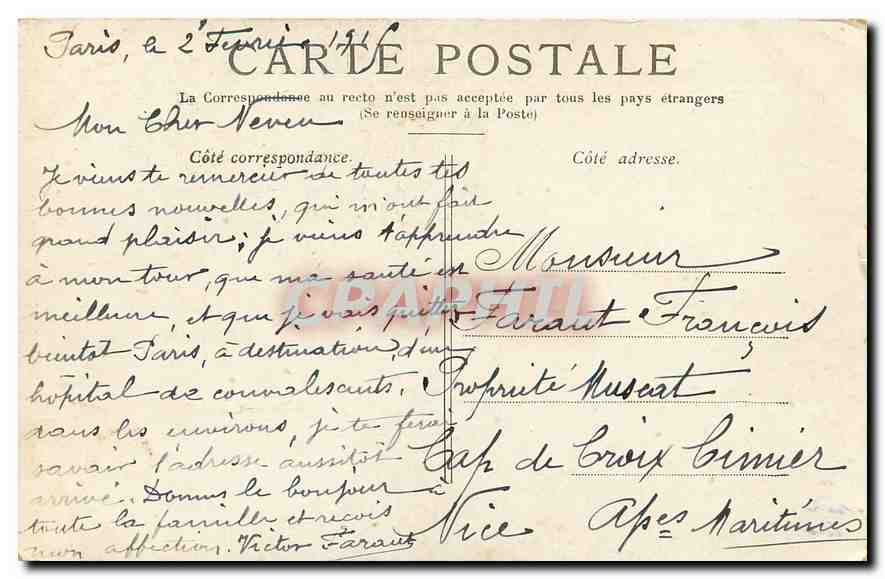 Paris, le 2 Fevrier 1915
CARTE POSTALE
La Correspondance au recto n'est pas acceptée par tous les pays étrangers
(Se renseigner à la Poste)
Mon Cher Neveu
Côté correspondance.
Côté adresse.
Je viens te remercier de toutes tes
bonnes nouvelles, qui m'ont fait
grand plaisir; je viens t'apprendre
à mon tour, que ma santé est
meilleure, et que je vais quitter
bientot Paris, à destination, d'un
hôpital de convalescents,
dans les environs, je te ferai
savoir l'adresse aussitôt
arrivé. Donnes le bonjour à
toute la famille et reçois
mon affection. Victor Faraut
Monsieur
Faraut François
Propriété Muscat
Cap de Croix Cimiér
Nice Alpes Maritimes
CPAPHIL